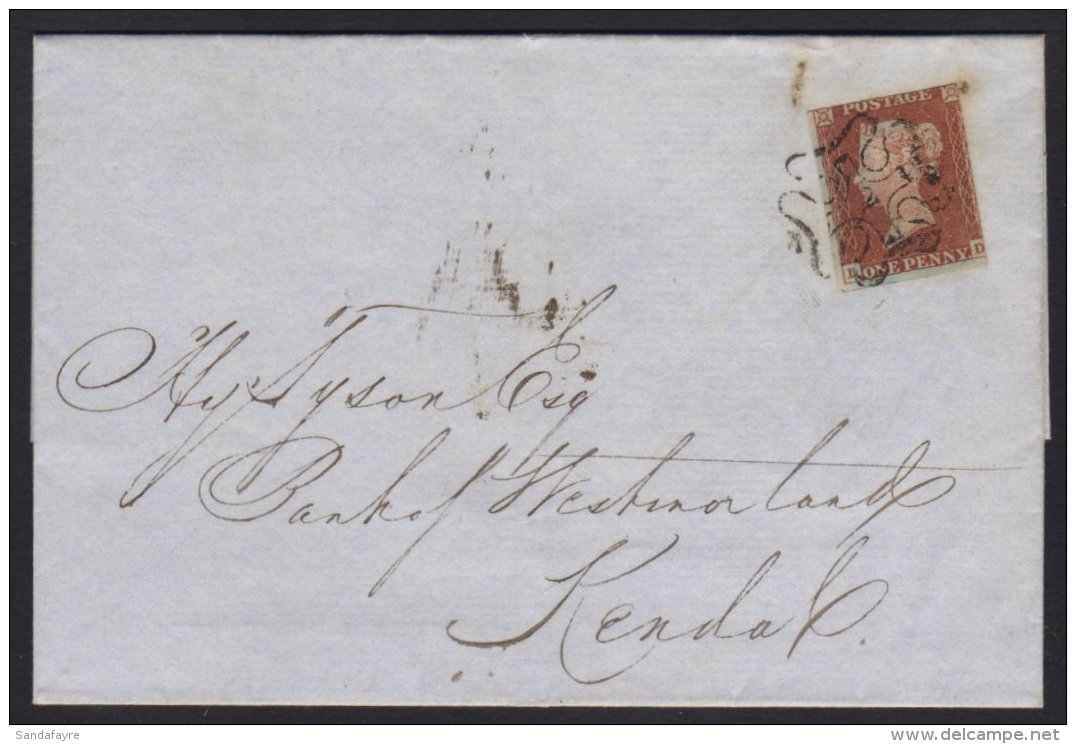 POSTAGE
ONE PENNY D
Hy Tyson Esq
Bank of Westmorland
Kendal.
Sandafayre
www.delcampe.net